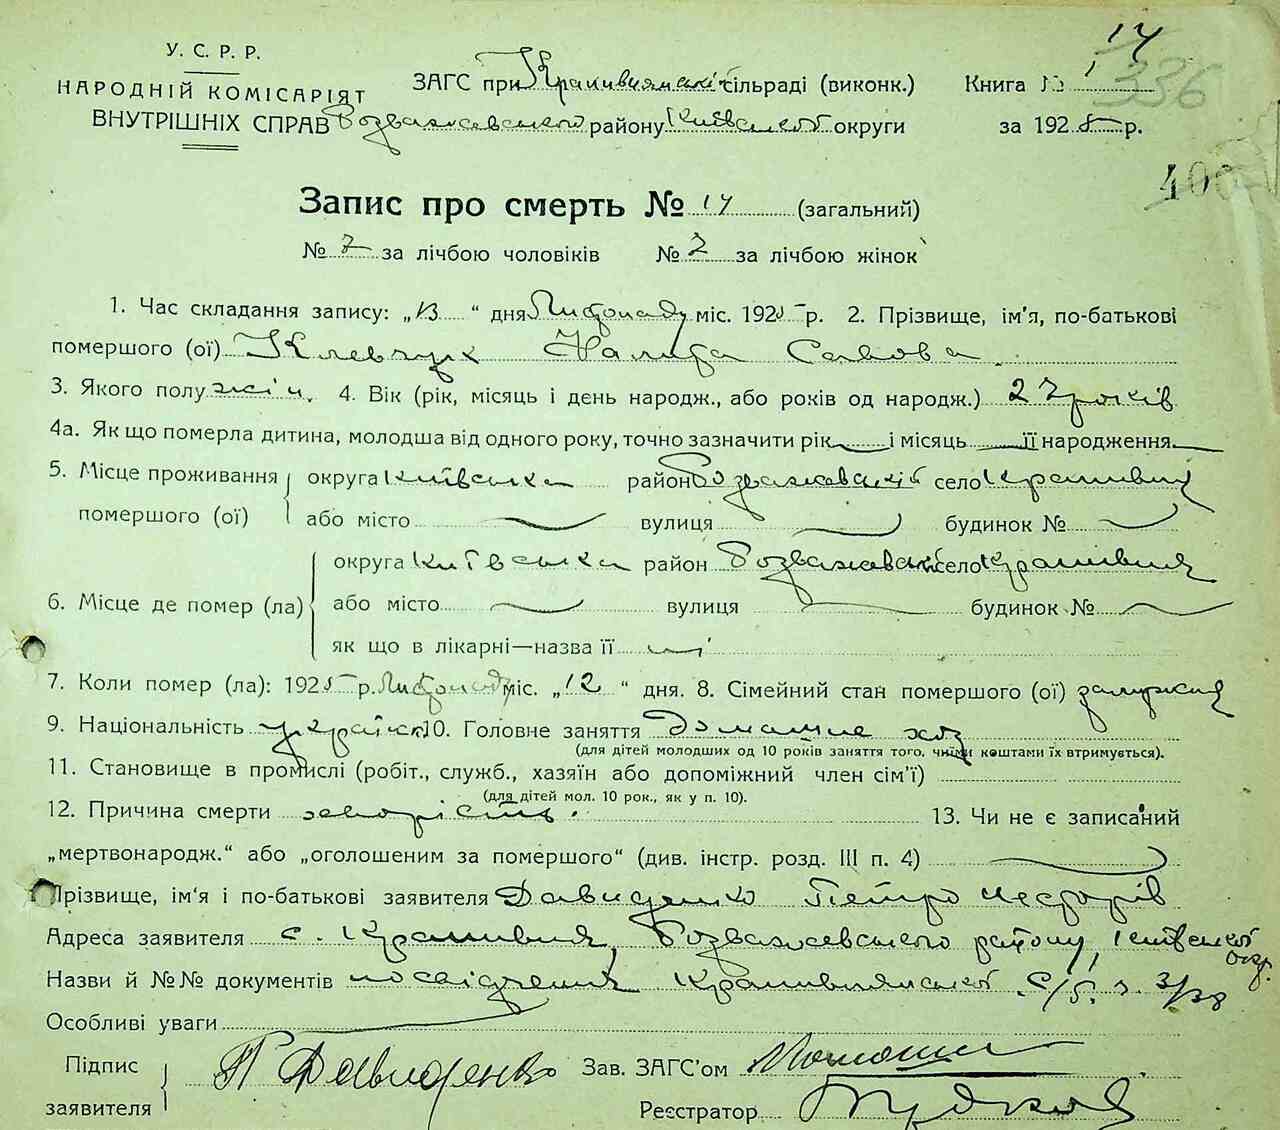 14
У. С. Р. Р.
НАРОДНІЙ КОМІСАРІЯТ
ВНУТРІШНІХ СПРАВ
ЗАГС при Крапивнянські сільраді (виконк.)
Розважевського району Київської округи
Книга № 1
336
за 1925 р.
400
Запис про смерть № 14 (загальний)
№ 7 за лічбою чоловіків № 7 за лічбою жінок
1. Час складання запису: „13“ дня Листопаду міс. 1925 р. 2. Прізвище, ім'я, по-батькові
помершого (ої) Клевчук Савова
3. Якого полу жін. 4. Вік (рік, місяць і день народж., або років од народж.) 27 років
4а. Як що померла дитина, молодша від одного року, точно зазначити рік і місяць її народження.
5. Місце проживання помершого (ої) округа Київська район Розважевський село Крапивня
або місто вулиця будинок №
6. Місце де помер (ла) округа Київська район Розважевськ село Крапивня
або місто вулиця будинок №
як що в лікарні—назва її ні
7. Коли помер (ла): 1925 р. Листопаду міс. „12“ дня. 8. Сімейний стан помершого (ої) замужня
9. Національність українк. 10. Головне заняття Домашнє хоз
(для дітей молодших од 10 років заняття того, чиїми коштами їх втримується).
11. Становище в промислі (робіт., служб., хазяїн або допоміжний член сім'ї)
(для дітей мол. 10 рок., як у п. 10).
12. Причина смерти хворість. 13. Чи не є записаний
„мертвонародж.“ або „оголошеним за помершого“ (див. інстр. розд. III п. 4)
Прізвище, ім'я і по-батькові заявителя Давиденко Петро Несторів
Адреса заявителя с. Крапивня, Розважевського району, Київської окр.
Назви й №№ документів посвідчення Крапивнянської с/Р. з 3/38
Особливі уваги
Підпис заявителя П Давиденко Зав. ЗАГС'ом
Реєстратор